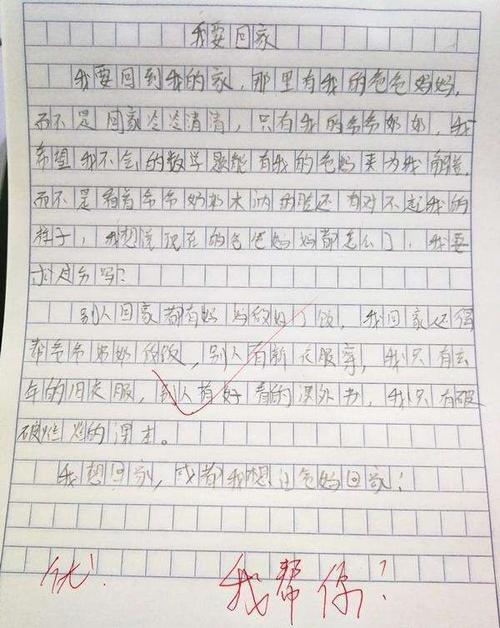 我要回家
我要回到我的家，那里有我的爸爸妈妈，
而不是回家冷冷清清，只有我的爷爷奶奶，我
希望我不会的数学题能有我的爸妈来为我解答，
而不是看着爷爷奶奶木讷的脸还有对不起我的
样子，我想说现在的爸爸妈妈都怎么了，我要
求过分吗？
别人回家都有妈妈做好了饭，我回家还得
帮爷爷奶奶做饭，别人有新衣服穿，我只有去
年的旧衣服，别人有好看的课外书，我只有破
破烂烂的课本。
我想回家，或者我想让爸妈回家！
优
我帮你！